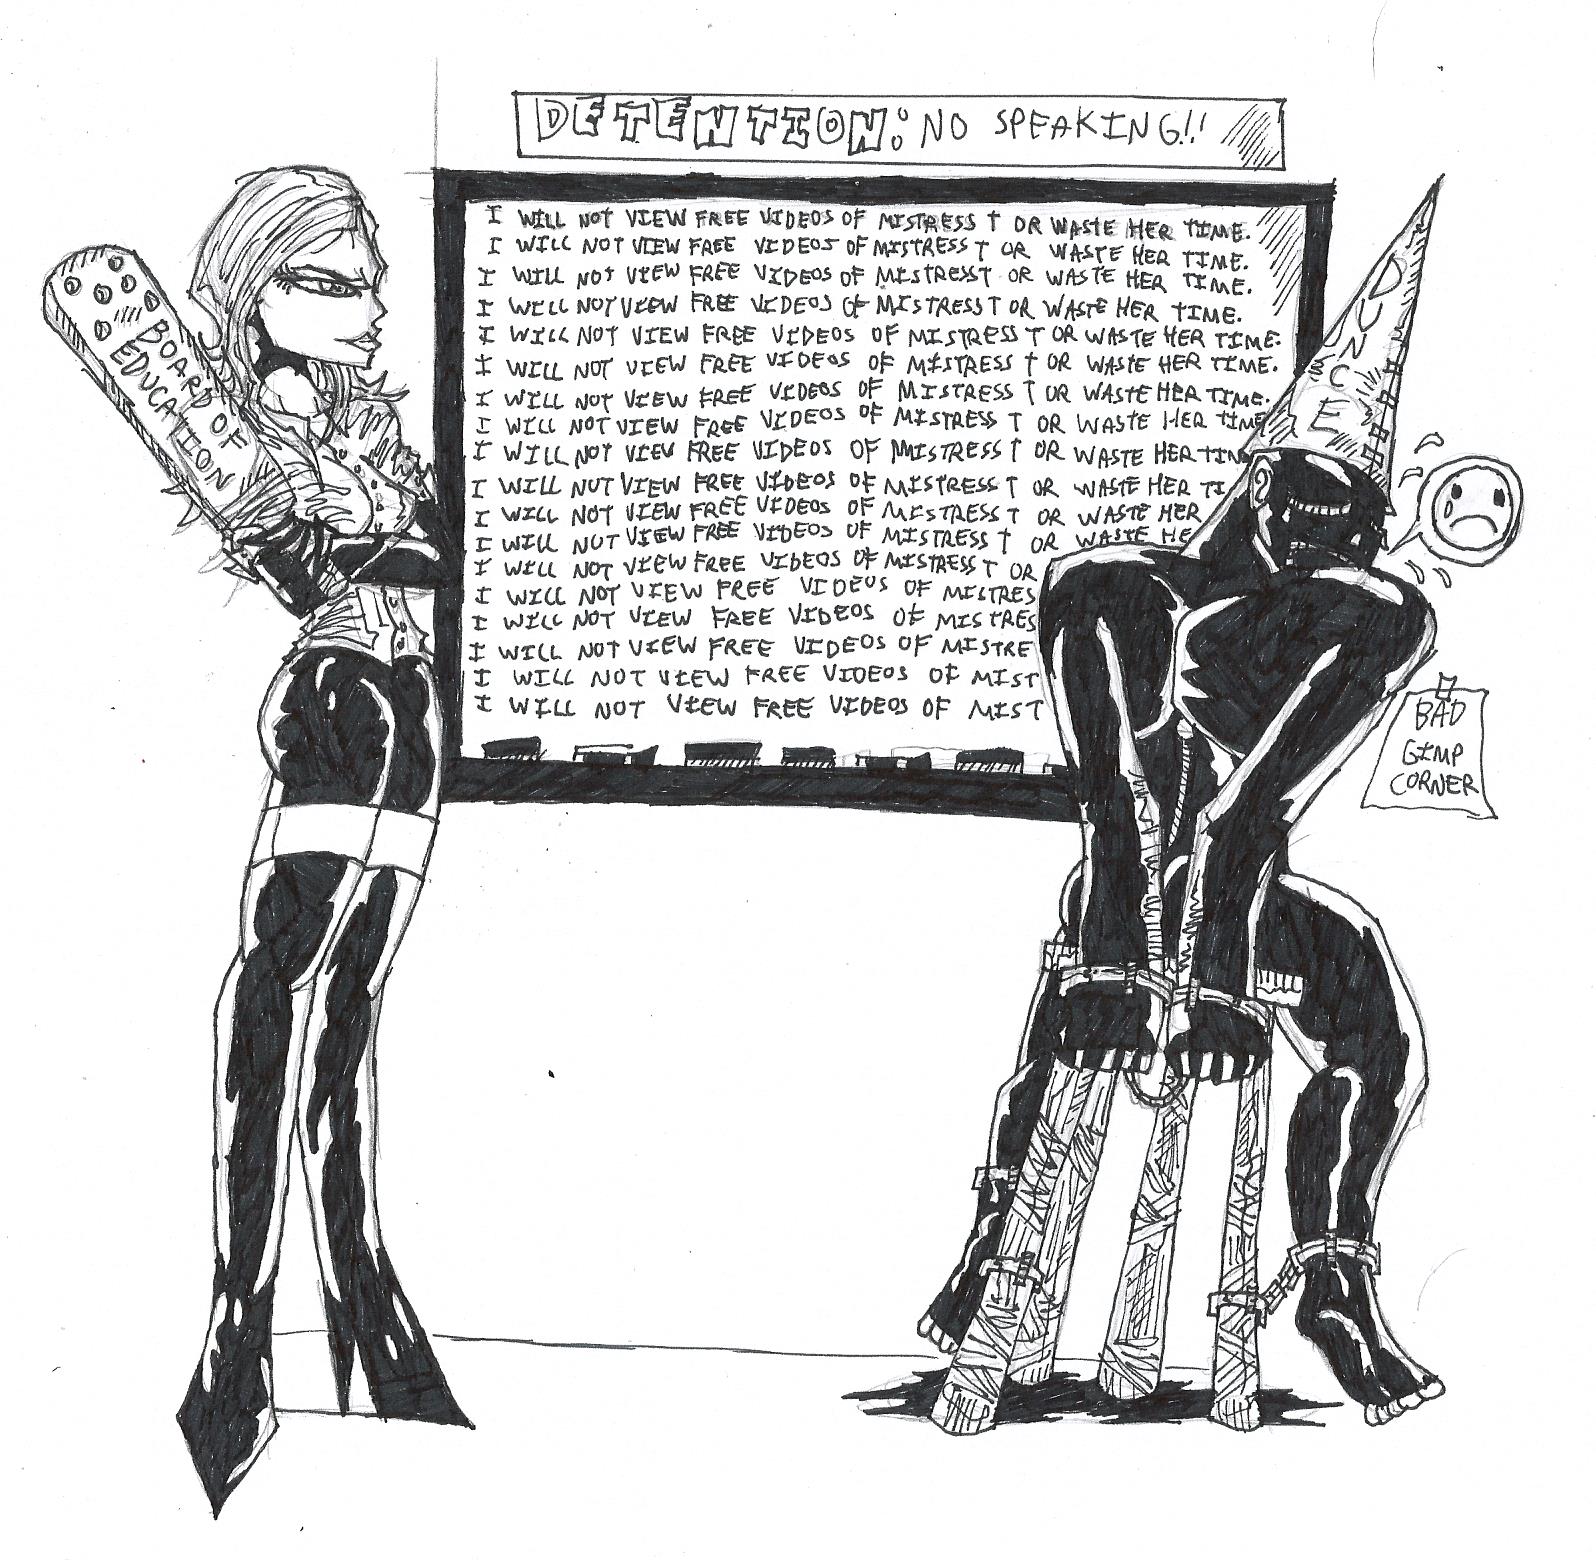 DETENTION: NO SPEAKING!!
I WILL NOT VIEW FREE VIDEOS OF MISTRESS T OR WASTE HER TIME.
I WILL NOT VIEW FREE VIDEOS OF MISTRESS T OR WASTE HER TIME.
I WILL NOT VIEW FREE VIDEOS OF MISTRESS T OR WASTE HER TIME.
I WILL NOT VIEW FREE VIDEOS OF MISTRESS T OR WASTE HER TIME.
I WILL NOT VIEW FREE VIDEOS OF MISTRESS T OR WASTE HER TIME.
I WILL NOT VIEW FREE VIDEOS OF MISTRESS T OR WASTE HER TIME.
I WILL NOT VIEW FREE VIDEOS OF MISTRESS T OR WASTE HER TIME.
I WILL NOT VIEW FREE VIDEOS OF MISTRESS T OR WASTE HER TIME
I WILL NOT VIEW FREE VIDEOS OF MISTRESS T OR WASTE HER TIM
I WILL NOT VIEW FREE VIDEOS OF MISTRESS T OR WASTE HER TI
I WILL NOT VIEW FREE VIDEOS OF MISTRESS T OR WASTE HER
I WILL NOT VIEW FREE VIDEOS OF MISTRESS T OR WASTE HE
I WILL NOT VIEW FREE VIDEOS OF MISTRESS T OR
I WILL NOT VIEW FREE VIDEOS OF MISTRES
I WILL NOT VIEW FREE VIDEOS OF MISTRES
I WILL NOT VIEW FREE VIDEOS OF MISTRE
I WILL NOT VIEW FREE VIDEOS OF MIST
I WILL NOT VIEW FREE VIDEOS OF MIST
BOARD OF
EDUCATION
DUNCE
BAD
GIMP
CORNER